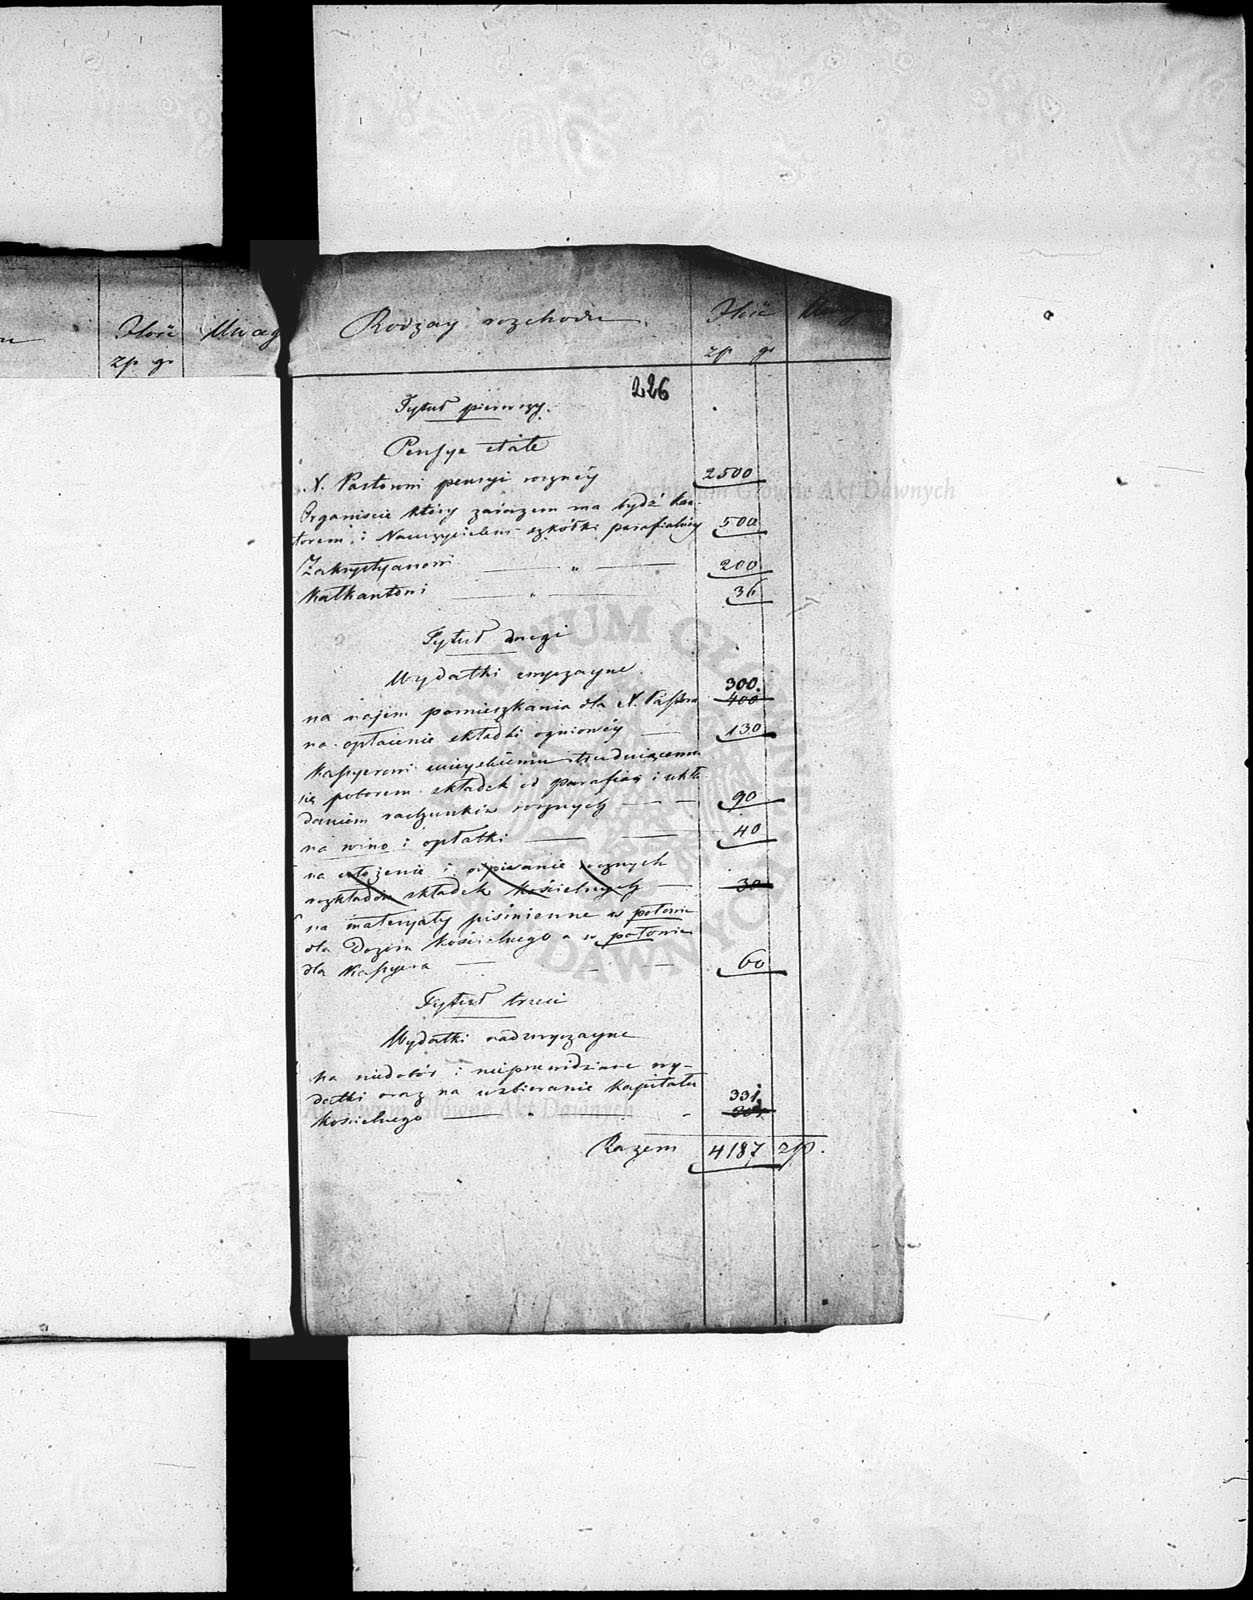 Ilość
Uwag
zp gr
Rodzay rozchodu
Ilość
Uwag
zp gr
226
Tytuł pierwszy.
Pensye stałe
X. Pastorowi pensyi roczney
2500
Organiscie który zarazem ma bydź kan-
torem i Nauczycielem szkółki parafialney
500
Zakrystyanowi — „ —
200
Kalkantowi — „ —
36
Tytuł drugi
Wydatki zwyczayne
300.
na najem pomieszkania dla X. Pastora
400
na opłacenie składki ogniowéy —
130
Kassyerowi trudniącemu
się poborem składek od parafian i
daniem rachunków rocznych — —
90
na wino i opłatki — —
40
na ułożenie i opisanie rocznych
rozkładów składek kościelnych —
30
na materyały piśmienne w połowie
dla Dozoru kościelnego a w połowie
dla Kassyera — — —
60
Tytuł trzeci
Wydatki nadzwyczayne
na niedobór i nieprzewidziane wy-
datki oraz na uzbieranie kapitału
331
kościelnego — „ — „
Razem 4187 zlp.
Archiwum Główne Akt Dawnych
ARCHIWUM GŁÓWNE AKT DAWNYCH
Archiwum Główne Akt Dawnych